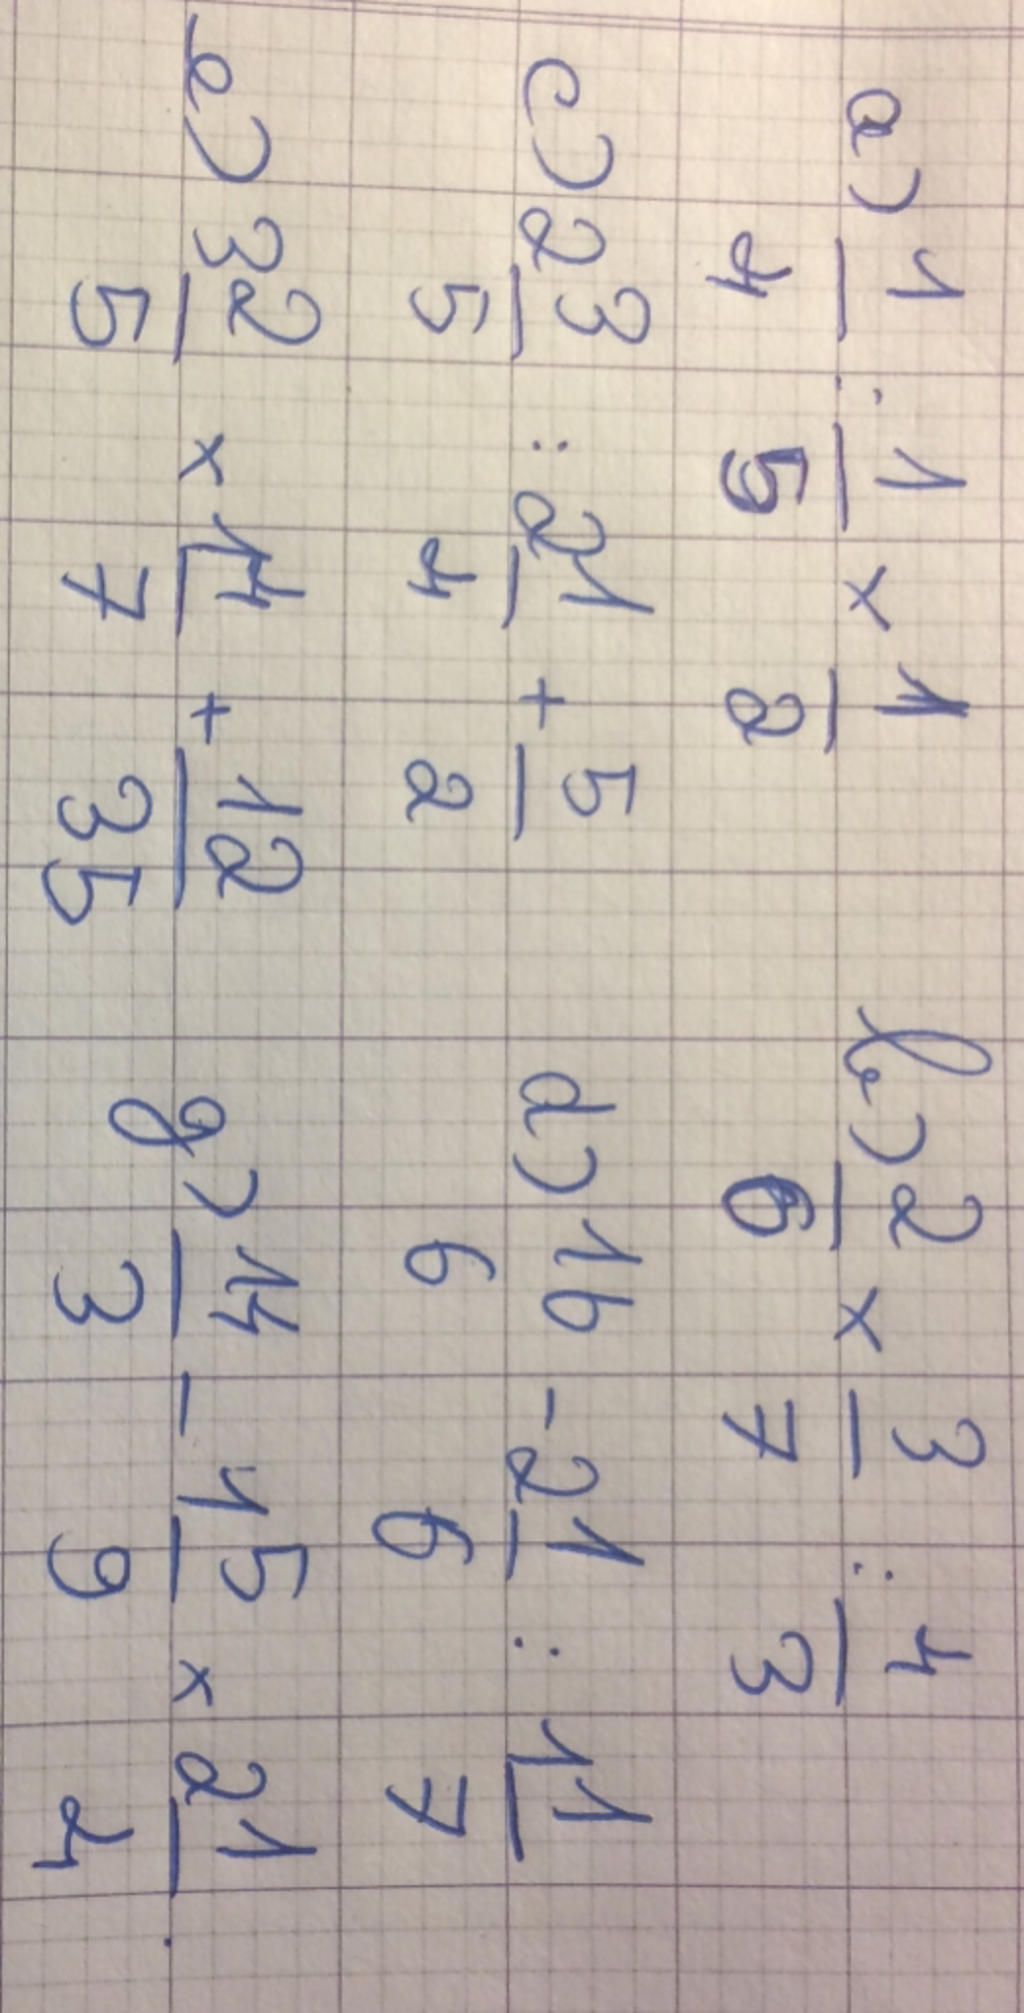 a) 1/4 : 1/5 x 1/2 b) 2/6 x 3/7 : 4/3
c) 2 3/5 : 2 1/4 + 5/2 d) 16 6 - 2 1/6 : 1 1/7
e) 3 2/5 x 1 4/7 + 12/35 g) 14/3 - 1 5/9 x 2 1/4 .